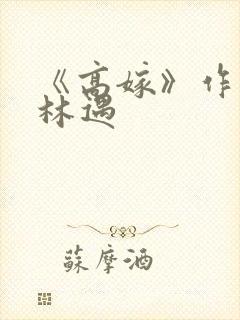 《高嫁》作
林遇
蘇摩酒